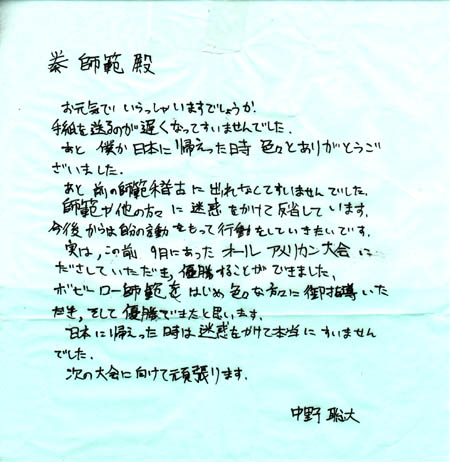 師範殿
お元気でいらっしゃいますでしょうか.
手紙を送るのが遅くなってすいませんでした.
あと 僕が日本に帰えった日時 色々とありがとうご
ざいました.
あと 前の師範稽古に出れなくてすいませんでした.
師範や他の方々に迷惑をかけて反省しています.
今後からは をもって行動をしていきたいです.
実は,この前 9月にあった オール アメリカン大会に
ださしていただき,優勝することができました.
ボビー ロー師範をはじめ色々な方々に御指導いた
だき,そして優勝できたと思います.
日本に帰えった時は迷惑をかけて本当にすいません
でした.
次の大会に向けて頑張ります.
中野 聡大